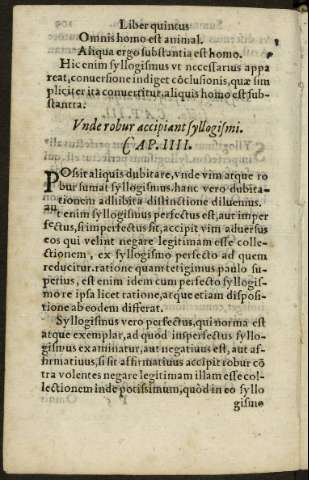 Liber quintus
Omnis homo est animal.
Aliqua ergo substantia est homo.
Hic enim syllogismus vt necessarius appa
reat, conuersione indiget cōclusionis, quæ sim
pliciter ita conuertitur, aliquis homo est sub-
stantia.
Vnde robur accipiant syllogismi.
CAP. IIII.
POsit aliquis dubitare, vnde vim atque ro
bur sumat syllogismus. hanc vero dubita-
tionem adhibita distinctione diluemus.
aut enim syllogismus perfectus est, aut imper
fectus, si imperfectus sit, accipit vim aduersus
eos qui velint negare legitimam esse colle-
ctionem, ex syllogismo perfecto ad quem
reducitur. ratione quam tetigimus paulo su-
perius, est enim idem cum perfecto syllogis-
mo re ipsa licet ratione, atque etiam disposi-
tione ab eodem differat.
Syllogismus vero perfectus, qui norma est
atque exemplar, ad quòd imperfectus syllo-
gismus examinatur, aut negatiuus est, aut af-
firmatiuus, si sit affirmatiuus accipit robur cō
tra volentes negare legitimam illam esse col-
lectionem inde potissimum, quòd in eo syllo
gismo